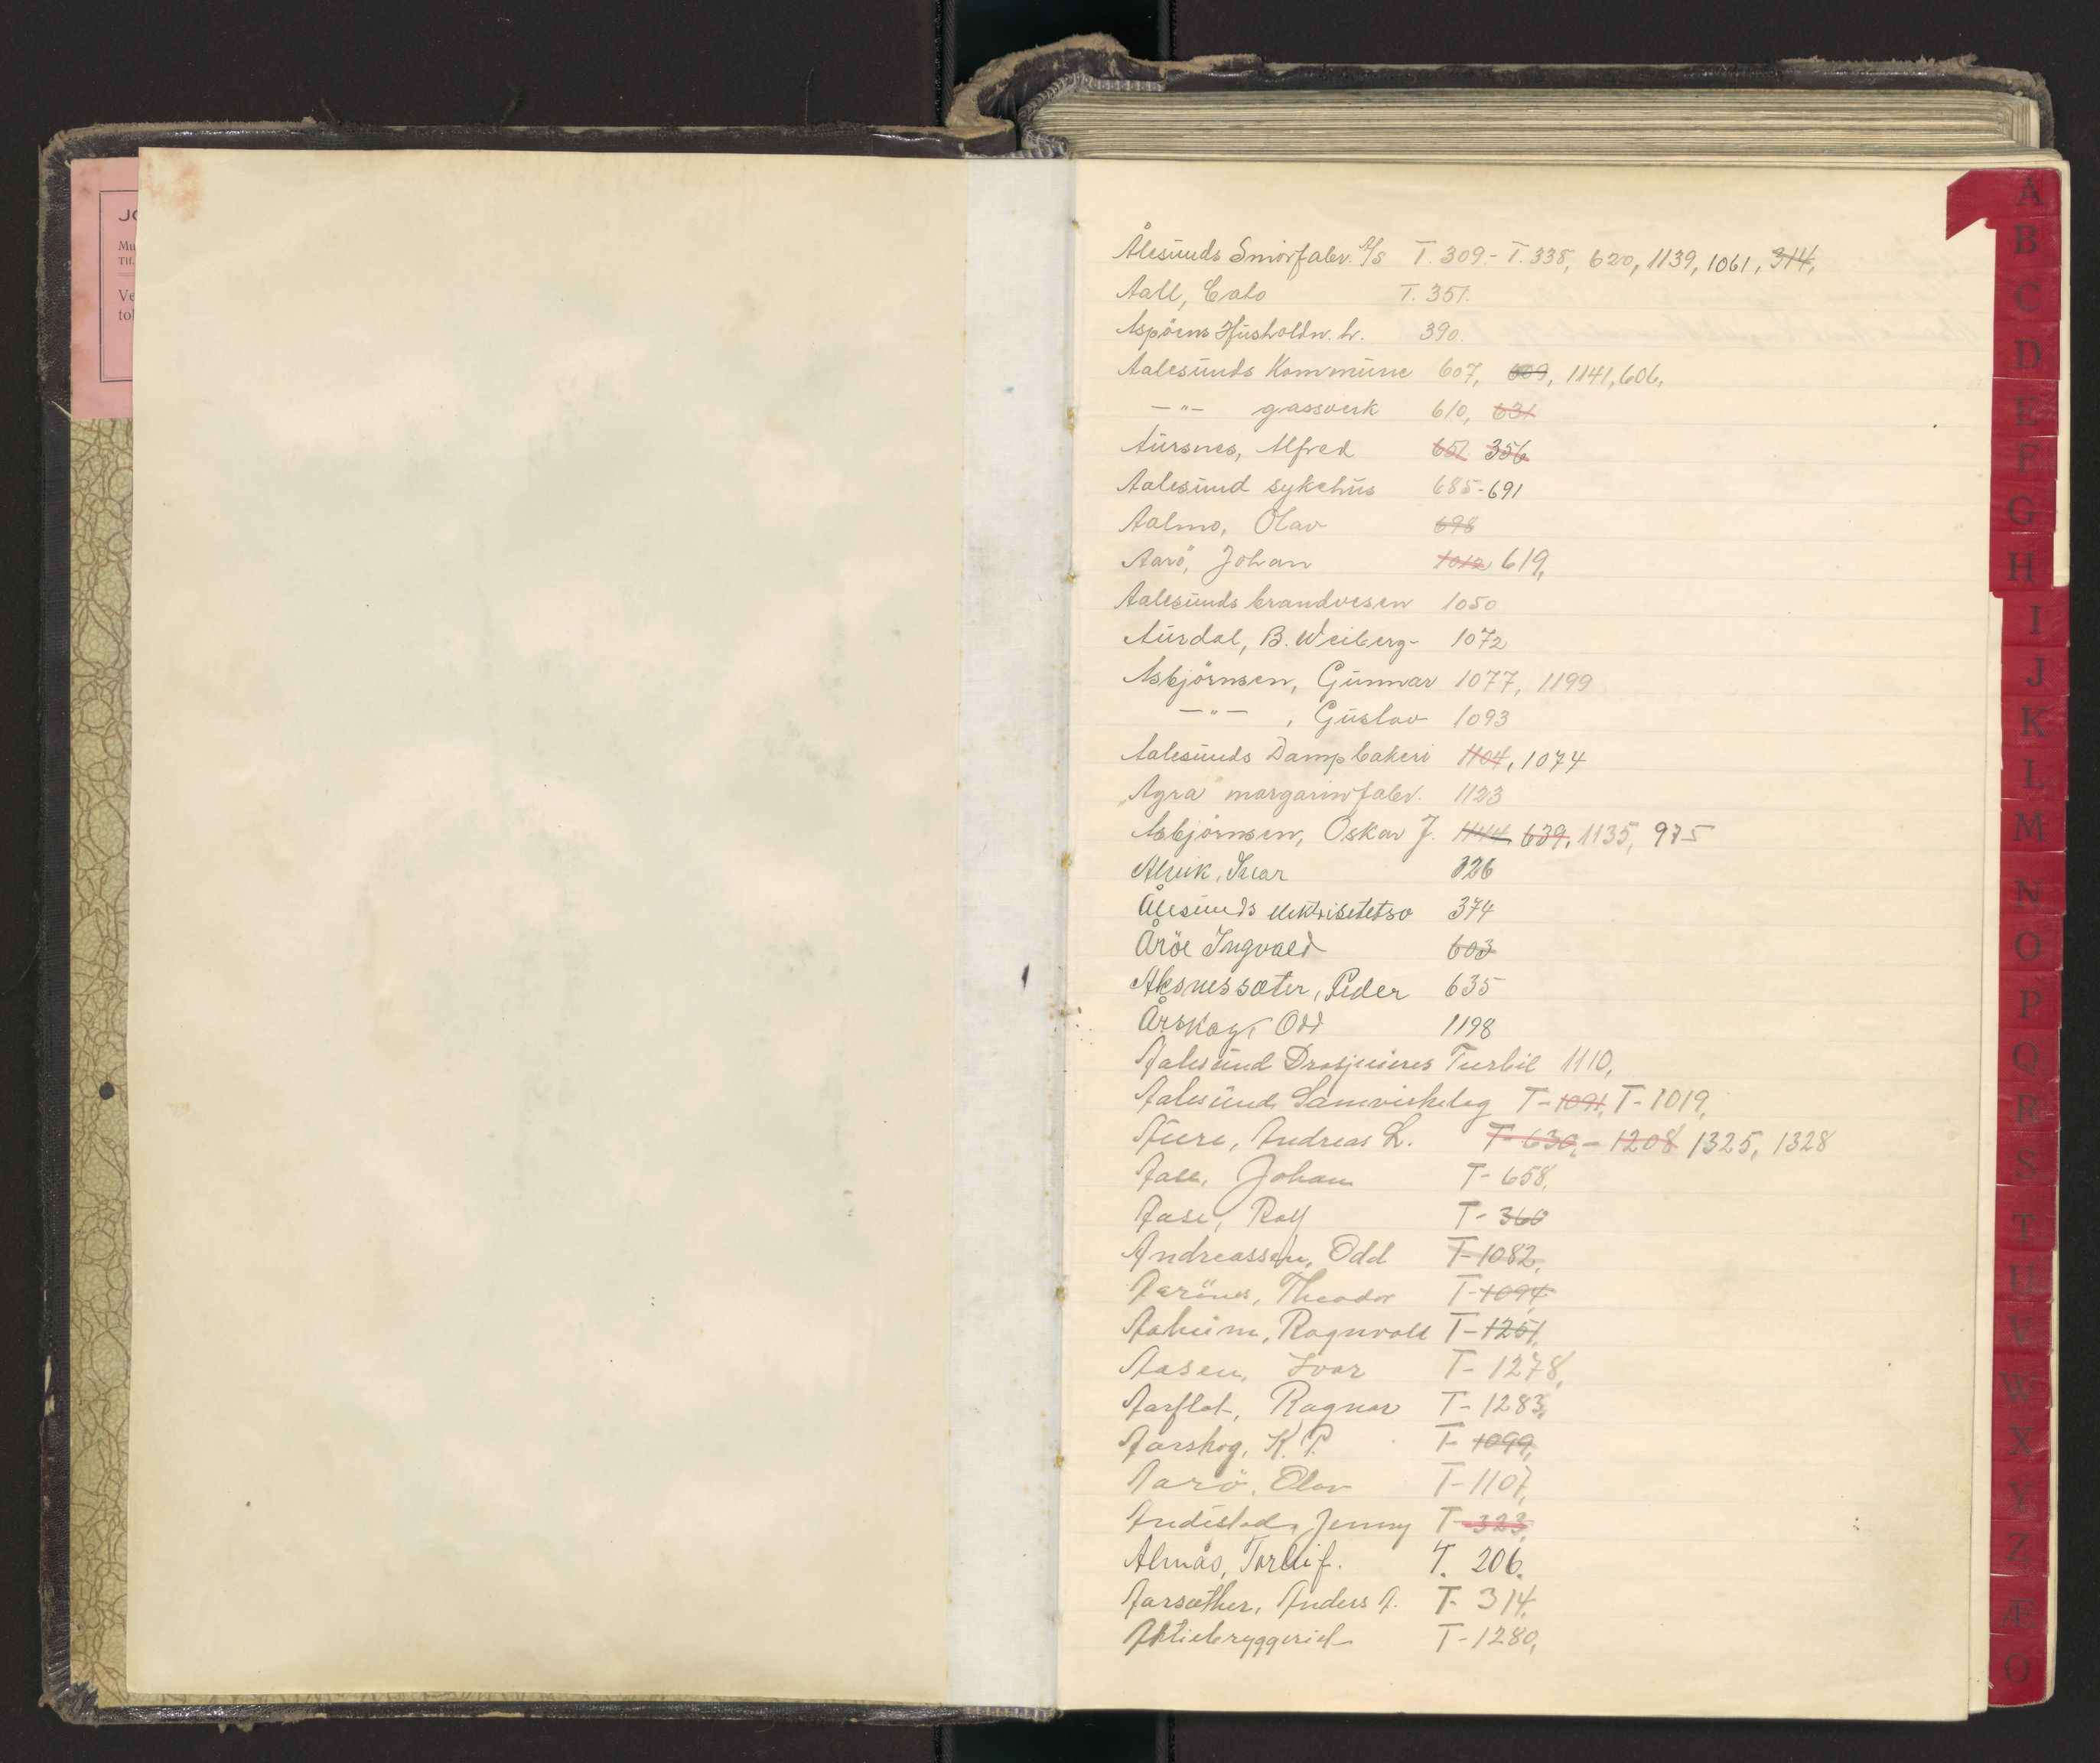 JO
Mu
Tlf.
Ve
tol
Ålesunds Smörfabr. A/S T. 309.- T. 338, 620, 1139, 1061, 314,
Aall, Cato T. 351.
Aspöens Husholdn. l. 390.
Aalesunds Kommune 607, 609, 1141, 606,
-"- gassverk 610, 631
Aursnes, Alfred 651 356
Aalesund sykehus 685-691
Aalmo, Olav 698
Aarö, Johan 1012 619,
Aalesunds brandvesen 1050
Aurdal, B. Weiberg- 1072
Asbjörnsen, Gunnar 1077, 1199
-"- , Gustav 1093
Aalesunds Dampbakeri 1104, 1074
"Agra" margarinfabr. 1123
Asbjörnsen, Oskar J. 1144 639, 1135, 975
Alvik, Ivar 326
Ålesunds elektrisitetsv 374
Åröe Ingvald 603
Aksnessæter, Peder 635
Årskog, Odd 1198
Aalesund Drosjeeieres Turbil 1110,
Aalesund Samvirkelag T-1091, T-1019,
Aure, Andreas L. T-630,- 1208 1325, 1328
Aase, Johan T- 658,
Aase, Rolf T- 360
Andreassen, Odd T-1082,
Aarönes, Theodor T-1094,
Aaheim, Ragnvald T-1251,
Aasen, Ivar T- 1278,
Aarflot, Ragnar T- 1283,
Aarskog, K. P. T- 1099,
Aarö, Olav T-1107,
Andestad, Jenny T-323,
Almås, Torleif. T. 206.
Aarsæther, Anders A. T- 314,
Aktiebryggeriet T-1280,
A
B
C
D
E
F
G
H
I
J
K
L
M
N
O
P
Q
R
S
T
U
V
W
X
Y
Z
Æ
O